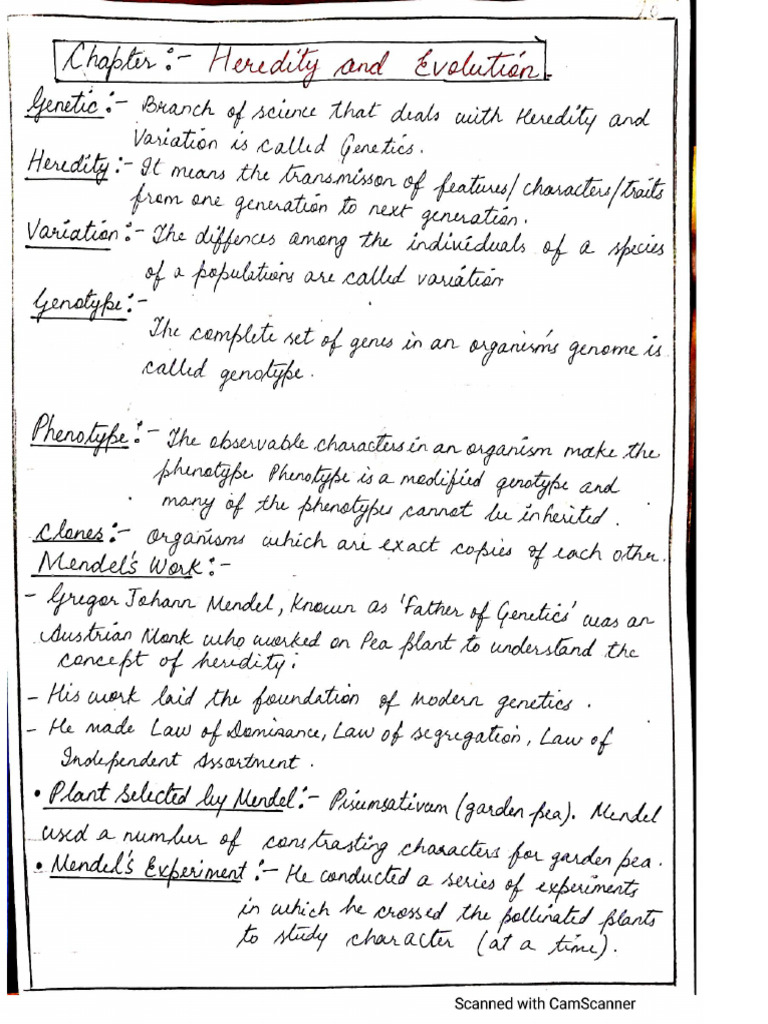 Chapter :- Heredity and Evolution.
Genetic :- Branch of science that deals with Heredity and
Variation is called Genetics.
Heredity :- It means the transmisson of features/characters/traits
from one generation to next generation.
Variation :- The diffences among the individuals of a species
of a populations are called variation
Genotype :-
The complete set of genes in an organism's genome is
called genotype.
Phenotype :- The observable characters in an organism make the
phenotype Phenotype is a modified genotype and
many of the phenotypes cannot be inherited.
Clones :- organisms which are exact copies of each other.
Mendel's Work :-
- Gregor Johann Mendel, Known as 'Father of Genetics' was an
Austrian Monk who worked on Pea plant to understand the
concept of heredity.
- His work laid the foundation of modern genetics.
- He made Law of Dominance, Law of segregation, Law of
Independent Assortment.
• Plant Selected by Mendel :- Pisumsativum (garden pea). Mendel
used a number of constrasting characters for garden pea.
• Mendel's Experiment :- He conducted a series of experiments
in which he crossed the pollinated plants
to study character (at a time).
Scanned with CamScanner